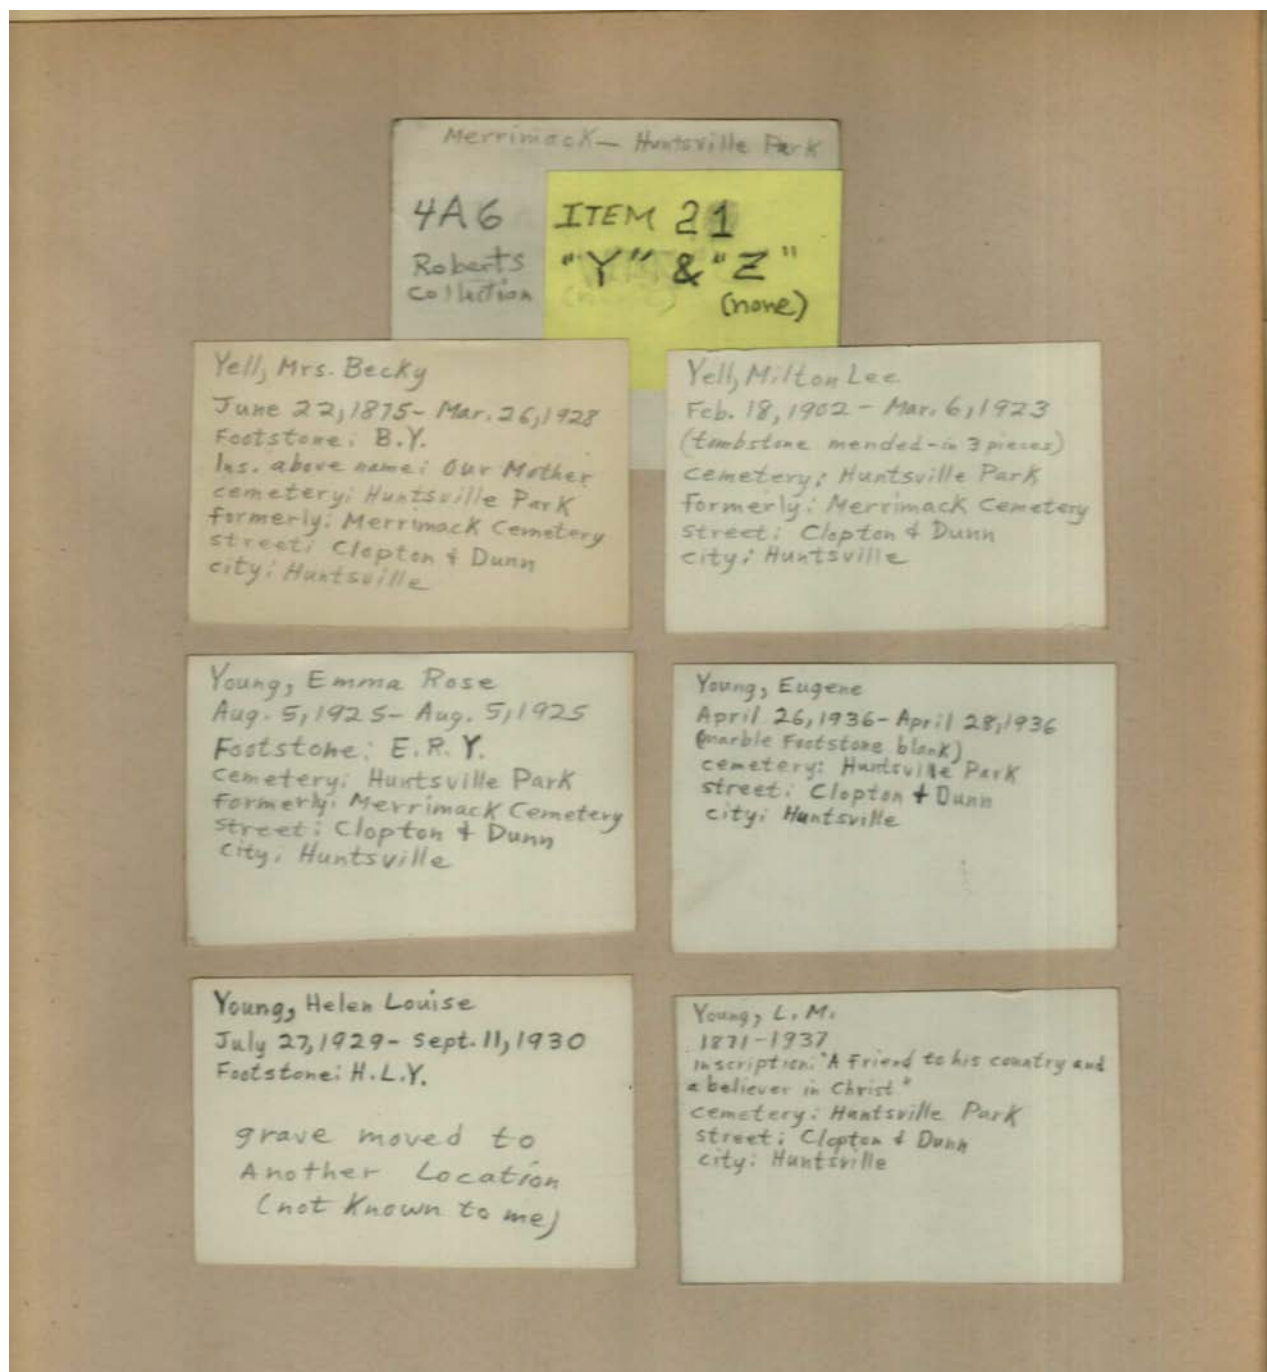 Merrimack - Huntsville Park
4A6
Roberts
Collection
ITEM 21
"Y" & "Z"
(none)
Yell, Mrs. Becky
June 22, 1875 - Mar. 26, 1928
Footstone: B.Y.
Ins. above name: Our Mother
cemetery: Huntsville Park
formerly: Merrimack Cemetery
street: Clopton & Dunn
city: Huntsville
Yell, Milton Lee
Feb. 18, 1902 - Mar. 6, 1923
(tombstone mended - in 3 pieces)
cemetery: Huntsville Park
formerly: Merrimack Cemetery
street: Clopton & Dunn
city: Huntsville
Young, Emma Rose
Aug. 5, 1925 - Aug. 5, 1925
Footstone: E.R.Y.
cemetery: Huntsville Park
formerly: Merrimack Cemetery
street: Clopton & Dunn
city: Huntsville
Young, Eugene
April 26, 1936 - April 28, 1936
(marble Footstone blank)
cemetery: Huntsville Park
street: Clopton & Dunn
city: Huntsville
Young, Helen Louise
July 27, 1929 - Sept. 11, 1930
Footstone: H.L.Y.
grave moved to
Another Location
(not known to me)
Young, L. M.
1871-1937
inscription: "A Friend to his country and
a believer in Christ"
cemetery: Huntsville Park
street: Clopton & Dunn
city: Huntsville